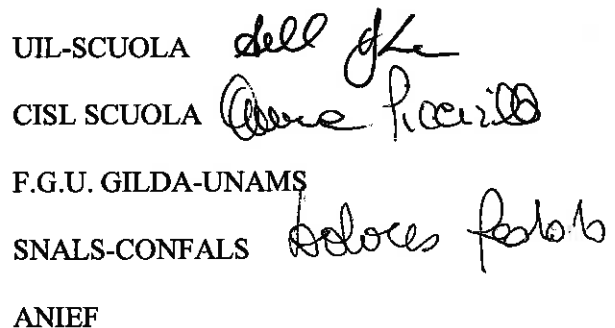 UIL-SCUOLA
CISL SCUOLA Piccirillo
F.G.U. GILDA-UNAMS
SNALS-CONFALS Dolores
ANIEF